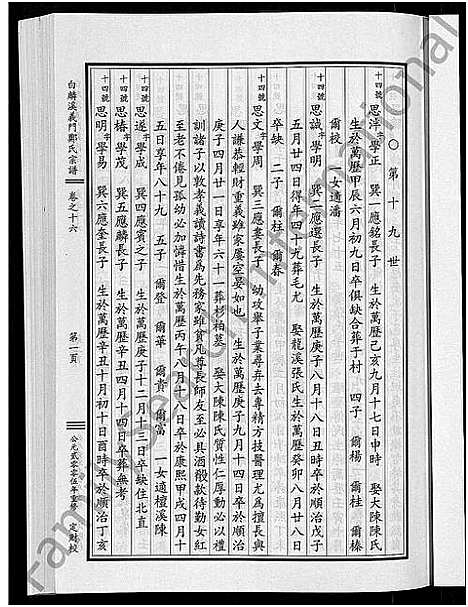 ○第十九世
十四號 思淳 字學正 巽一應銘長子 生於萬歷己亥九月十七日申時 娶大陳陳氏
生於萬歷甲辰六月初九日卒俱缺合葬于村 四子 爾楊 爾桂 爾榛
爾校 一女適潘
十四號 思誠 字學明 巽二應還長子 生於萬歷庚子八月十八日丑時卒於順治戊子
五月廿四日得年四十九葬毛尤 娶龍溪張氏生於萬歷癸卯八月廿八日
卒缺 二子 爾柱 爾春
十四號 思文 字學周 巽三應婁長子 幼攻舉子業尋弃去專精方技醫理尤為擅長與
人謙恭輕財重義雖家屢空晏如也 生於萬歷庚子九月十四日卒於順治
庚子四月廿一日享年六十一葬杉柏塞 娶大陳陳氏質性仁厚動必以禮
訓諸子以敦孝義讀詩書為先務家雖貧凡尊長師友至必具酒殽款待勤女紅
至老不倦見孤幼必加憐惜生於萬歷丙午八月十八日卒於康熙甲戌四月十
五日享年八十九 五子 爾登 爾華 爾貴 爾富 一女適檀溪陳
十四號 思遂 字學成 巽四應賓之子 生於萬歷庚子十二月十三日卒缺住北直
十四號 思椿 字學茂 巽五應麟長子 生於萬歷辛丑四月十四日卒葬無考
十四號 思明 字學易 巽六應奎長子 生於萬歷辛丑十月初十日酉時卒於順治丁亥
白麟溪義門鄭氏宗譜 卷之十六 第一頁 公元貳零零伍年重修 定財校